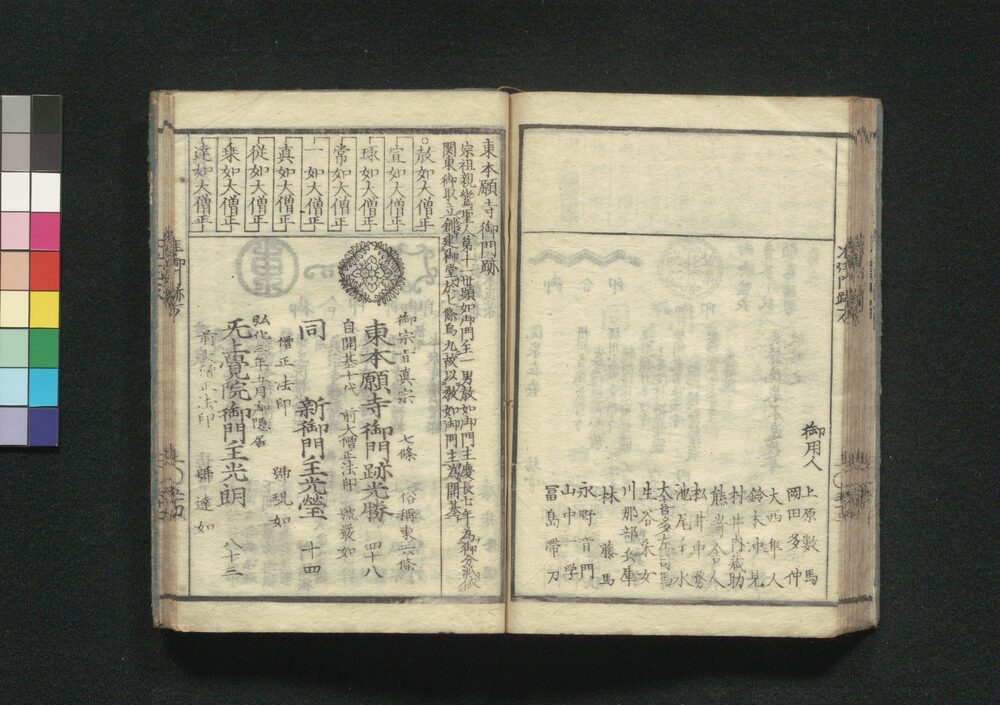 御用人
上原数馬
岡田多仲
大西隼人
鈴木沖見
村井内蔵助
熊谷舎人
松井中務
池尾主水
大喜多左司馬
生谷朱女
川那部兵庫
林藤馬
永野音門
山中一学
冨島帯刀
東本願寺御門跡
宗祖親鸞聖人第十一世顕如御門主一男教如御門主慶長七年為御分派
関東御取立創建御堂
故以教如御門主為開基
○教如大僧正
宣如大僧正
琢如大僧正
常如大僧正
一如大僧正
真如大僧正
従如大僧正
乗如大僧正
達如大僧正
御宗旨真宗 七條 俗稱東六條
東本願寺御門跡光勝 四十八
自開基十代 前大僧正法印 號嚴如
同 新御門主光瑩 十四
僧正法印 號現如
弘化三年五月御隱居
无上覺院御門主光朗 八十三
前大僧正法印 號達如